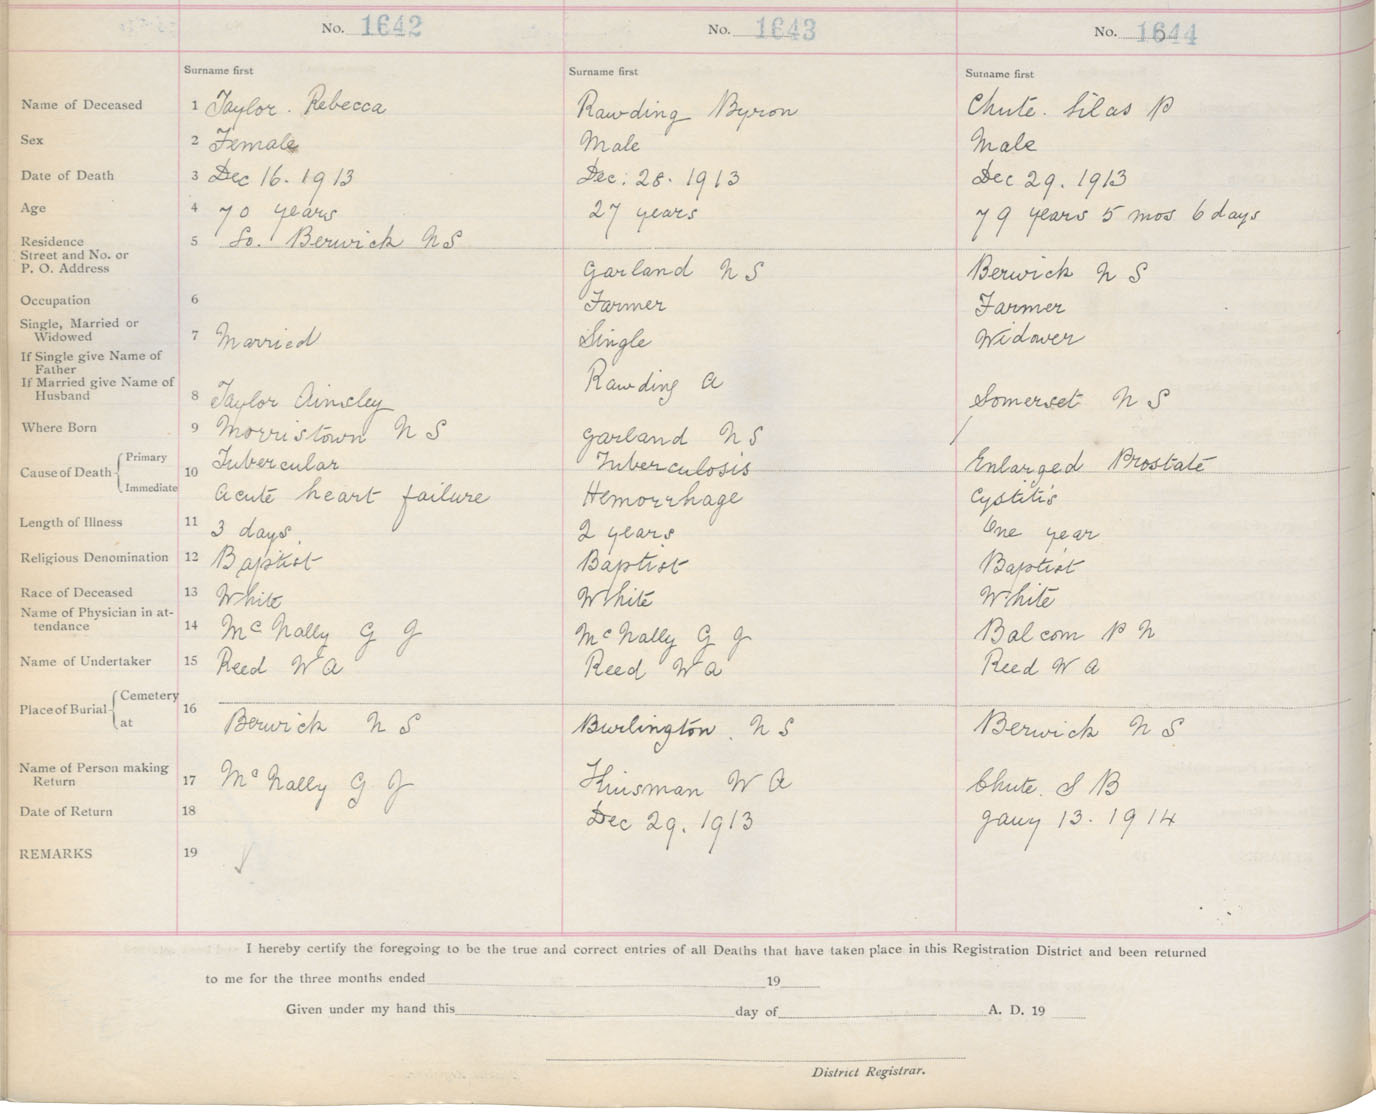 No. 1642 No. 1643 No. 1644
Surname first Surname first Surname first
Name of Deceased 1 Taylor. Rebecca Rawding Byron Chute. Silas P
Sex 2 Female Male Male
Date of Death 3 Dec 16. 1913 Dec. 28. 1913 Dec 29. 1913
Age 4 70 years 27 years 79 years 5 mos 6 days
Residence 5 So. Berwick N S
Street and No. or
P. O. Address Garland N S Berwick N S
Occupation 6 Farmer Farmer
Single, Married or
Widowed 7 Married Single Widower
If Single give Name of
Father Rawding A
If Married give Name of
Husband 8 Taylor Ainsley Somerset N S
Where Born 9 Morristown N S Garland N S
Cause of Death Primary 10 Tubercular Tuberculosis Enlarged Prostate
Immediate Acute heart failure Hemorrhage Cystitis
Length of Illness 11 3 days. 2 years One year
Religious Denomination 12 Baptist Baptist Baptist
Race of Deceased 13 White White White
Name of Physician in at-
tendance 14 McNally G J McNally G J Balcom P N
Name of Undertaker 15 Reed W A Reed W A Reed W A
Place of Burial Cemetery 16
at Berwick N S Burlington. N S Berwick N S
Name of Person making
Return 17 McNally G J Kinsman W A Chute. S B
Date of Return 18 Dec 29. 1913 Jany 13. 1914
REMARKS 19
I hereby certify the foregoing to be the true and correct entries of all Deaths that have taken place in this Registration District and been returned
to me for the three months ended 19
Given under my hand this day of A. D. 19
District Registrar.